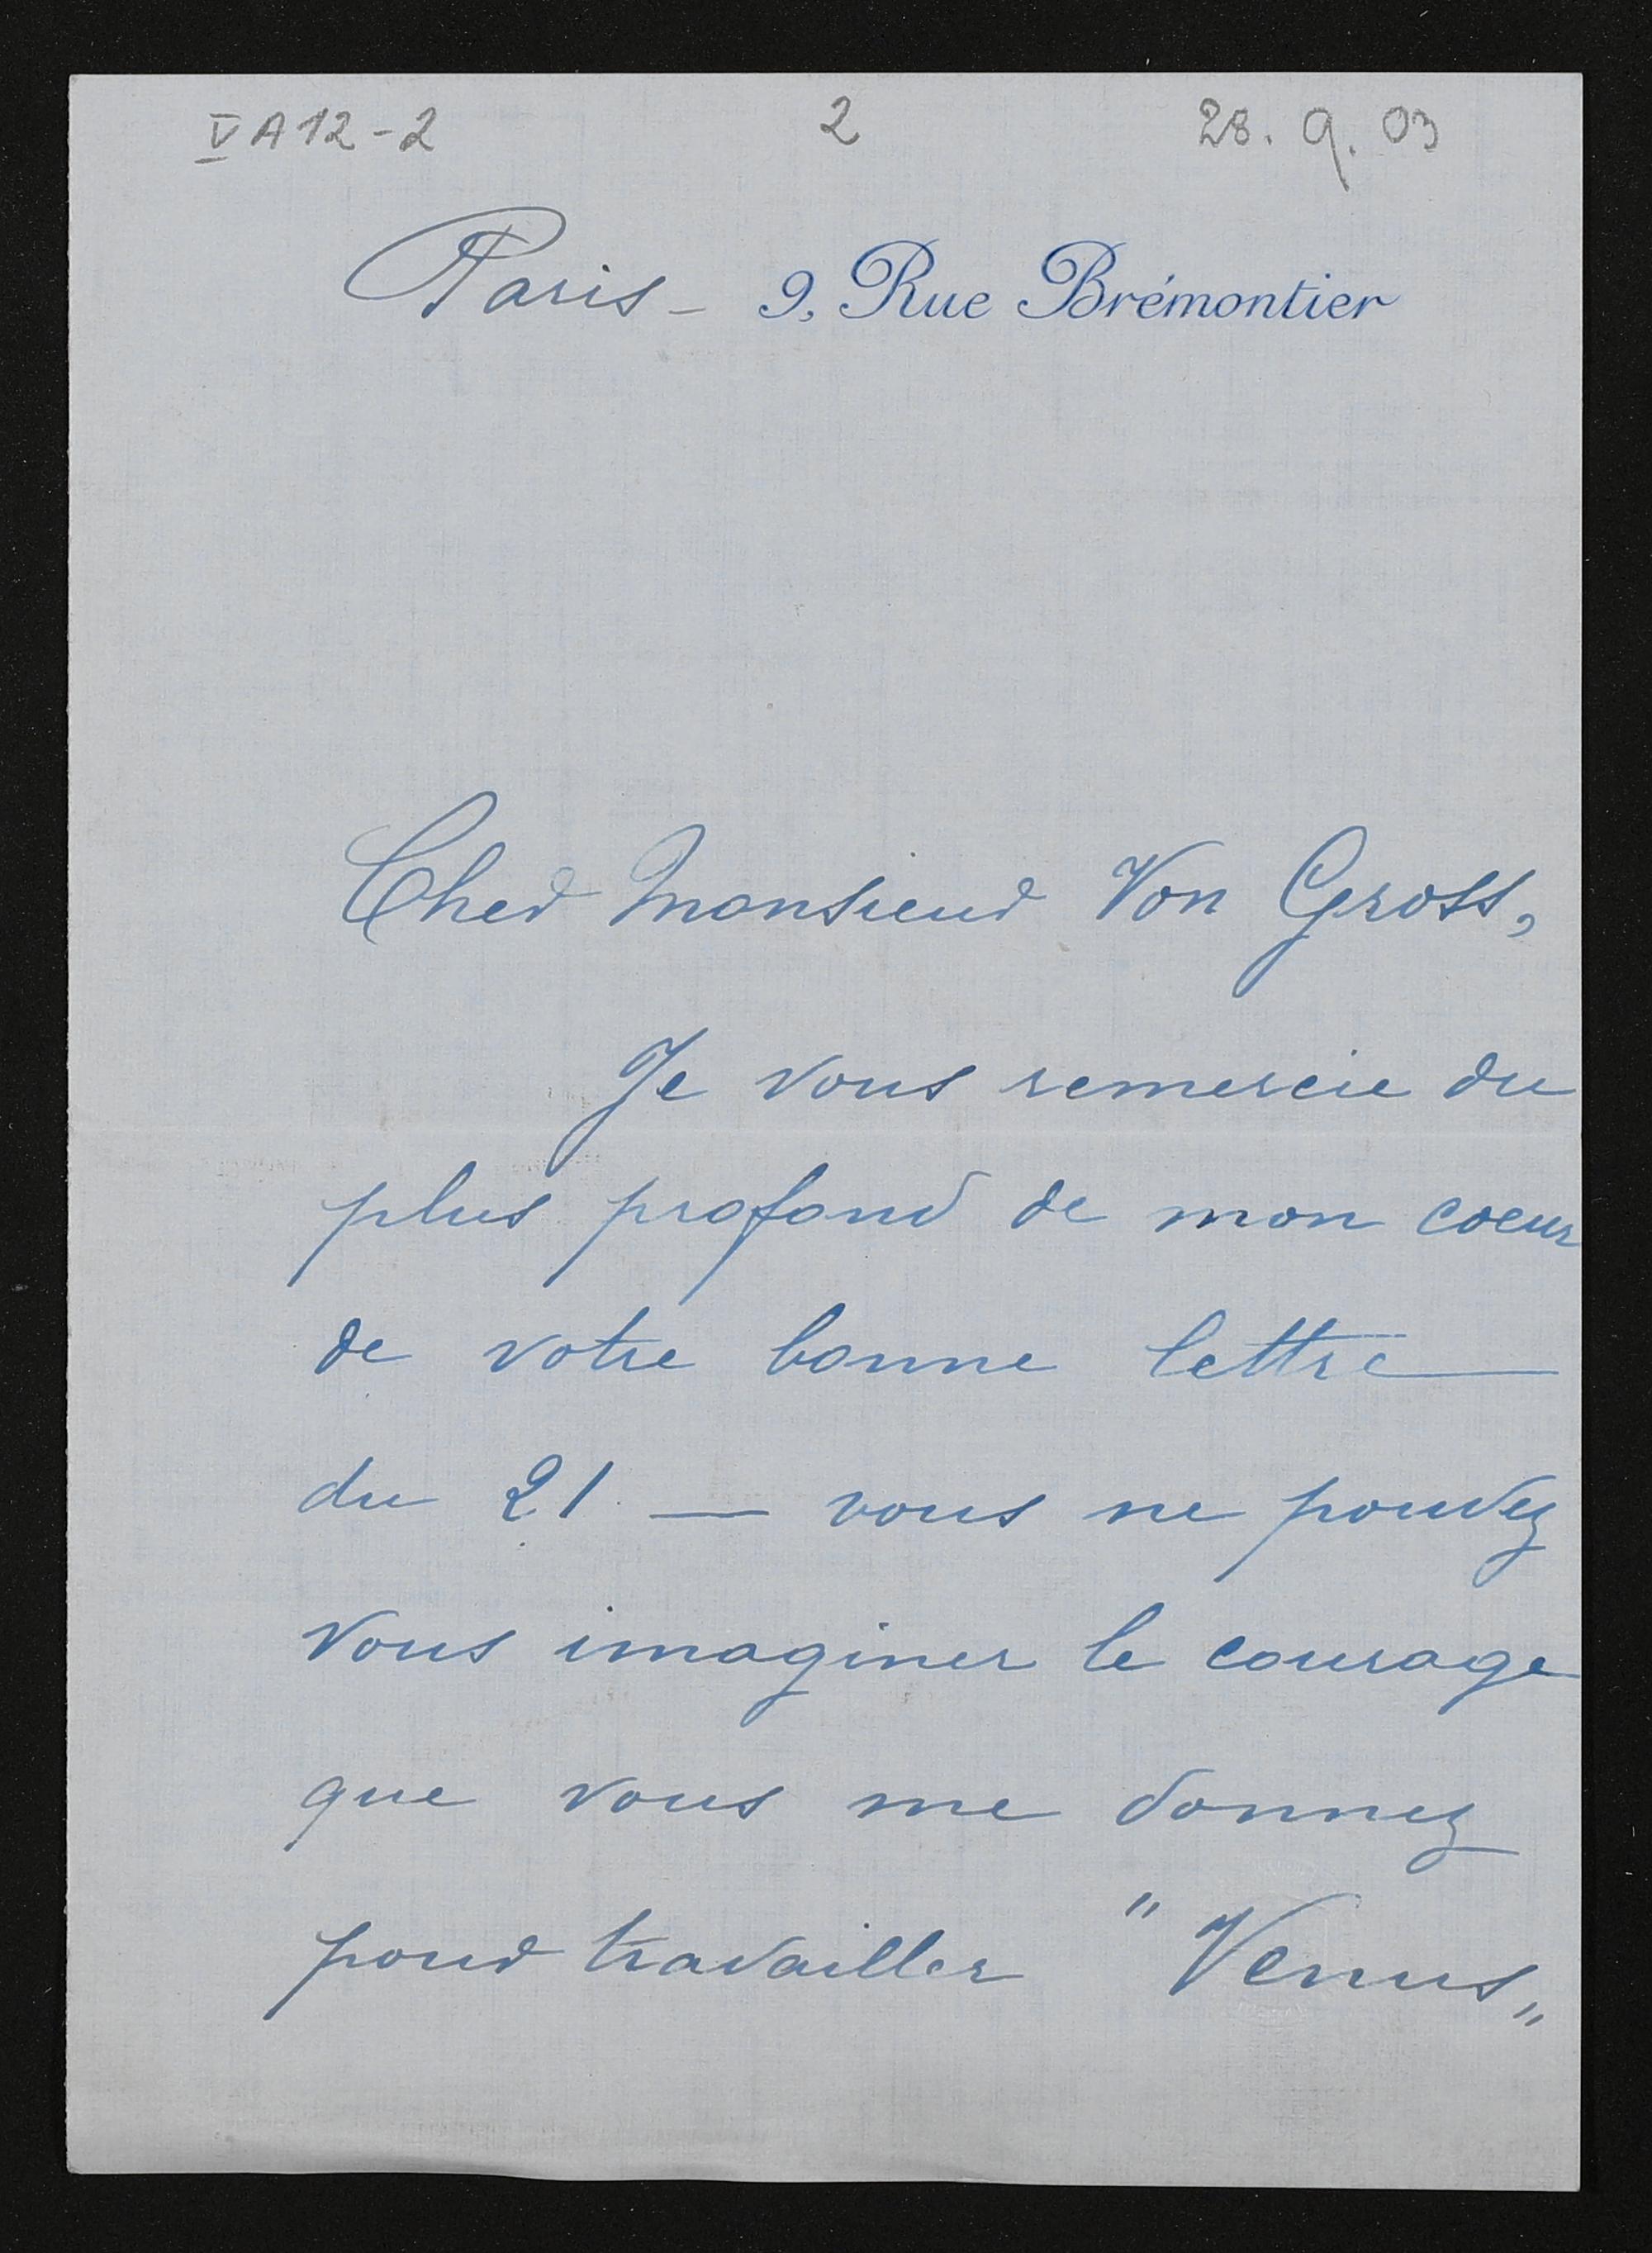 V A 12-2 2 28. 9. 03
Paris - 9, Rue Brémontier
Cher Monsieur Von Gross,
Je vous remercie du
plus profond de mon coeur
de votre bonne lettre
du 21 — vous ne pouvez
vous imaginer le courage
que vous me donnez
pour travailler "Venus„